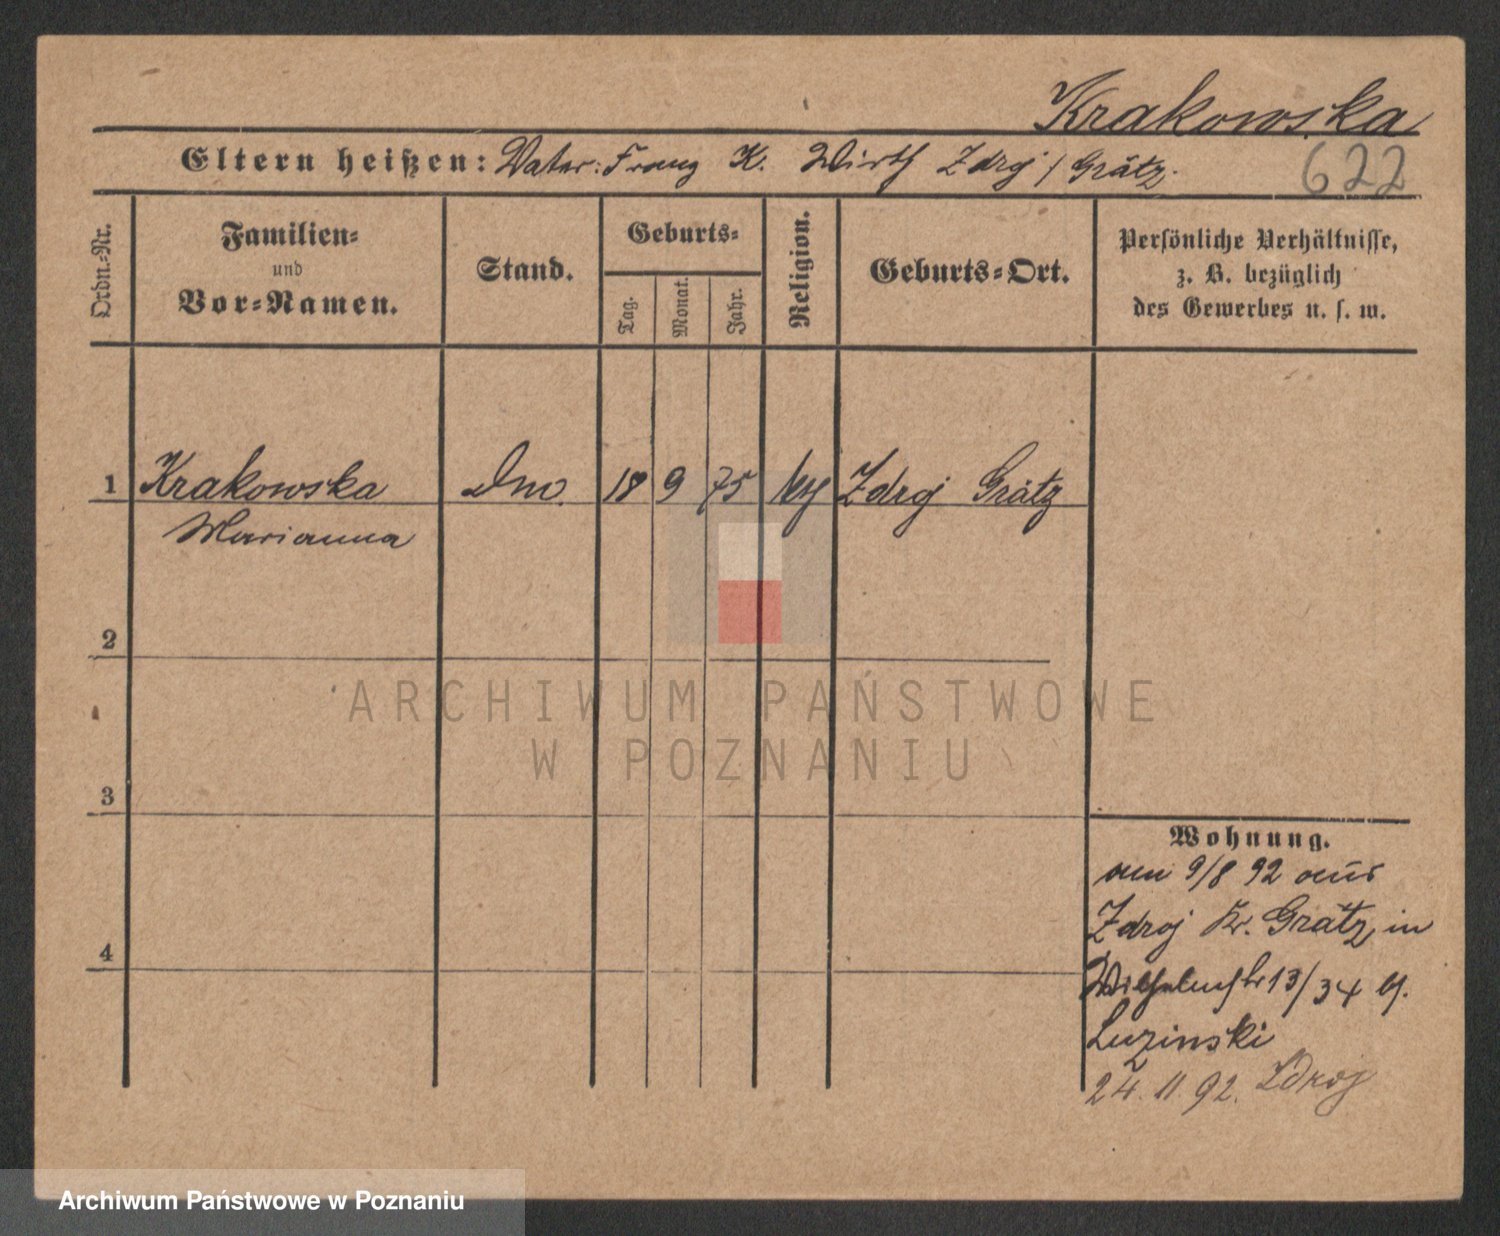 Krakowska
Eltern heißen: Vater: Franz K. Wirth Zdroj / Grätz.
622
Ordn.-Nr.
Familien-
und
Vor-Namen.
Stand.
Geburts-
Tag.
Monat.
Jahr.
Religion.
Geburts-Ort.
Persönliche Verhältnisse,
z. B. bezüglich
des Gewerbes u. s. w.
1 Krakowska 18 9 75 Zdroj Grätz
Marianna
2
ARCHIWUM PAŃSTWOWE
W POZNANIU
3
Wohnung.
9/8 92 aus
Zdroj Kr. Grätz in
4
13/34
Luzinski
24. 11. 92. Zdroj
Archiwum Państwowe w Poznaniu